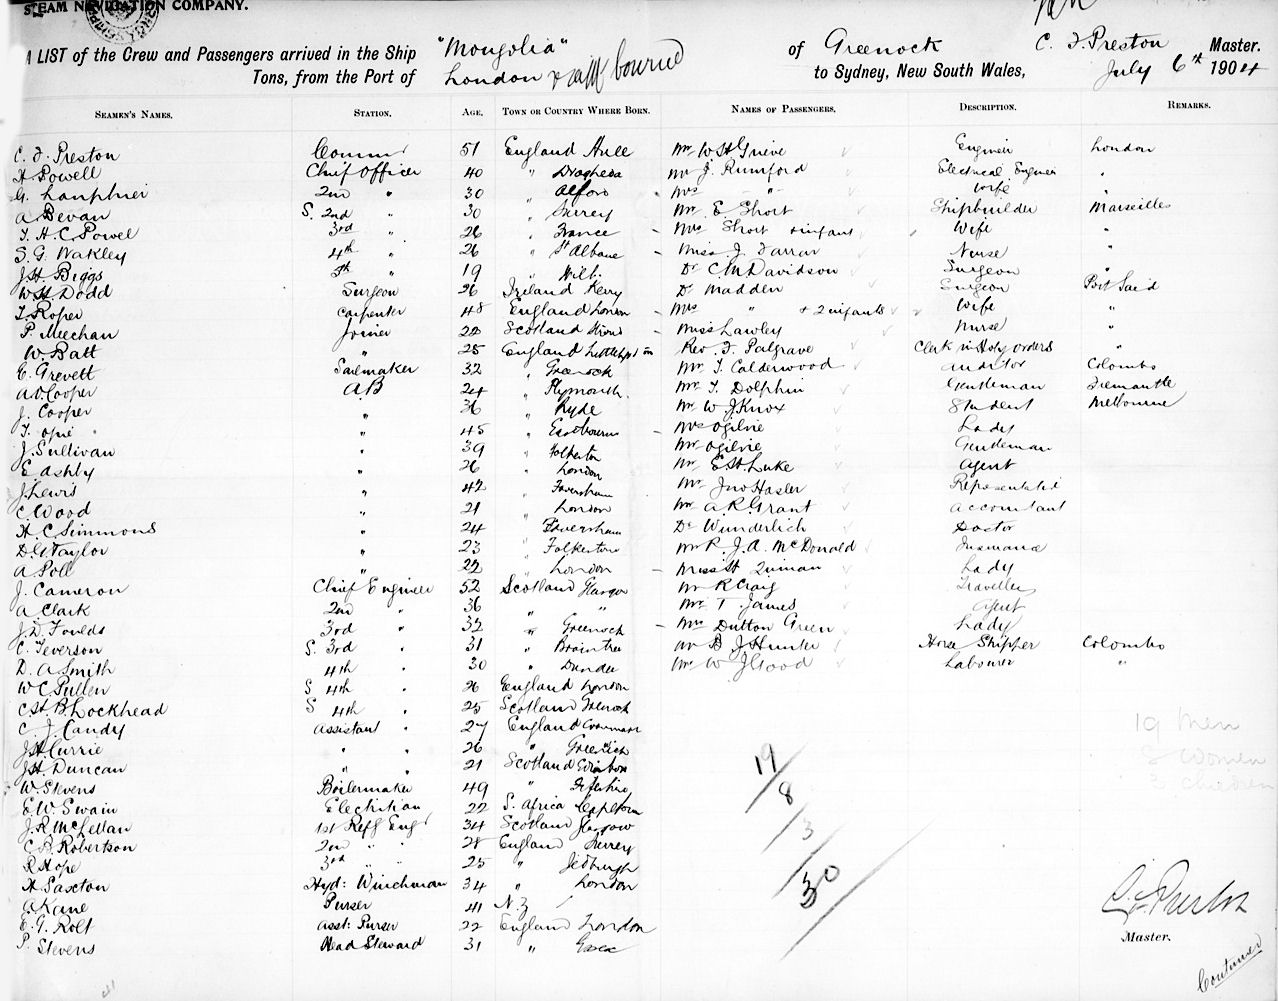 STEAM NAVIGATION COMPANY.
A LIST of the Crew and Passengers arrived in the Ship "Mongolia" of Greenock C. F. Preston Master.
Tons, from the Port of London to Sydney, New South Wales, July 6th 1904
SEAMEN'S NAMES. STATION. AGE. TOWN OR COUNTRY WHERE BORN. NAMES OF PASSENGERS. DESCRIPTION. REMARKS.
C. F. Preston 51 England Hull Mr W St Grieve Engineer London
H Powell Chief Officer 40 " Drogheda Mr J. Rumford Electrical Engineer "
G. Lanphier 2nd " 30 " Mrs " Wife "
A Bevan S. 2nd " 30 " Surrey Mr E Short Shipbuilder Marseilles
F. H. C. Powell 3rd " 26 " France Mrs Short + infant Wife "
S. G. Wakley 4th " 26 " St Albans Miss J. Farrar Nurse "
J H Biggs 5th " 19 " Wilts Dr C M Davidson Surgeon "
W H Dodd Surgeon 26 Ireland Kerry Dr Madden Surgeon Port Said
T. Roper Carpenter 48 England London Mrs " + 2 infants Wife "
P. Meechan Joiner 22 Scotland Miss Lawley Nurse "
W. Batt " 25 England Rev. F. Palgrave Clerk in Holy Orders "
E. Grevett Sailmaker 32 " Greenock Mr T. Calderwood Auditor Colombo
A D Cooper AB 24 " Plymouth Mr T. Dolphin Gentleman Fremantle
J. Cooper " 36 " Ryde Mr W J Knox Student Melbourne
T. Opie " 45 " Eastbourne Mrs Ogilvie Lady
J. Sullivan " 39 " Folkeston Mr Ogilvie Gentleman
E Ashby " 26 " London Mr E St Luke Agent
J. Lewis " 42 " Faversham Mr Jno Hasler
C Wood " 21 " London Mr A. R. Grant Accountant
H. C. Simmonds " 24 " Faversham Dr Wunderlich Doctor
D. G. Taylor " 23 " Folkeston Mr R. J. A. McDonald
A Poll " 22 " London Miss H Lady
J. Cameron Chief Engineer 52 Scotland Glasgow Mr R Craig Traveller
A Clark 2nd " 36 " " Mr T. James Agent
J. D. Foulds 3rd " 32 " Greenock Mrs Dutton Green Lady
C. Teverson S. 3rd " 31 " Braintree Mr B J Hunter Horse Shipper Colombo
D. A Smith 4th " 30 " Dundee Mr W J Good Labourer "
W C Pullen S 4th " 26 England London
C. St B. Lockhead S 4th " 25 Scotland Greenock
C. J. Candy Assistant " 27 England
J H Currie " " 26 " Greenwich
J H. Duncan " " 21 Scotland
W. Stevens Boilermaker 49 "
E. W. Swain Electritian 22 S. Africa Capetown
J. R. McLellan 1st Refg Engr 34 Scotland Glasgow
C. B. Robertson 2nd " " 28 England Surrey
R Hope 3rd " " 25 " Jedburgh
H Saxton Hyd: Winchman 34 " London
A Kane Purser 41 N. Z
E. G. Rolt Asst: Purser 22 England London
P. Stevens Head Steward 31 " Essex
19 Men
8 Women
3 Children
19
8
3
30
Master.
Continued